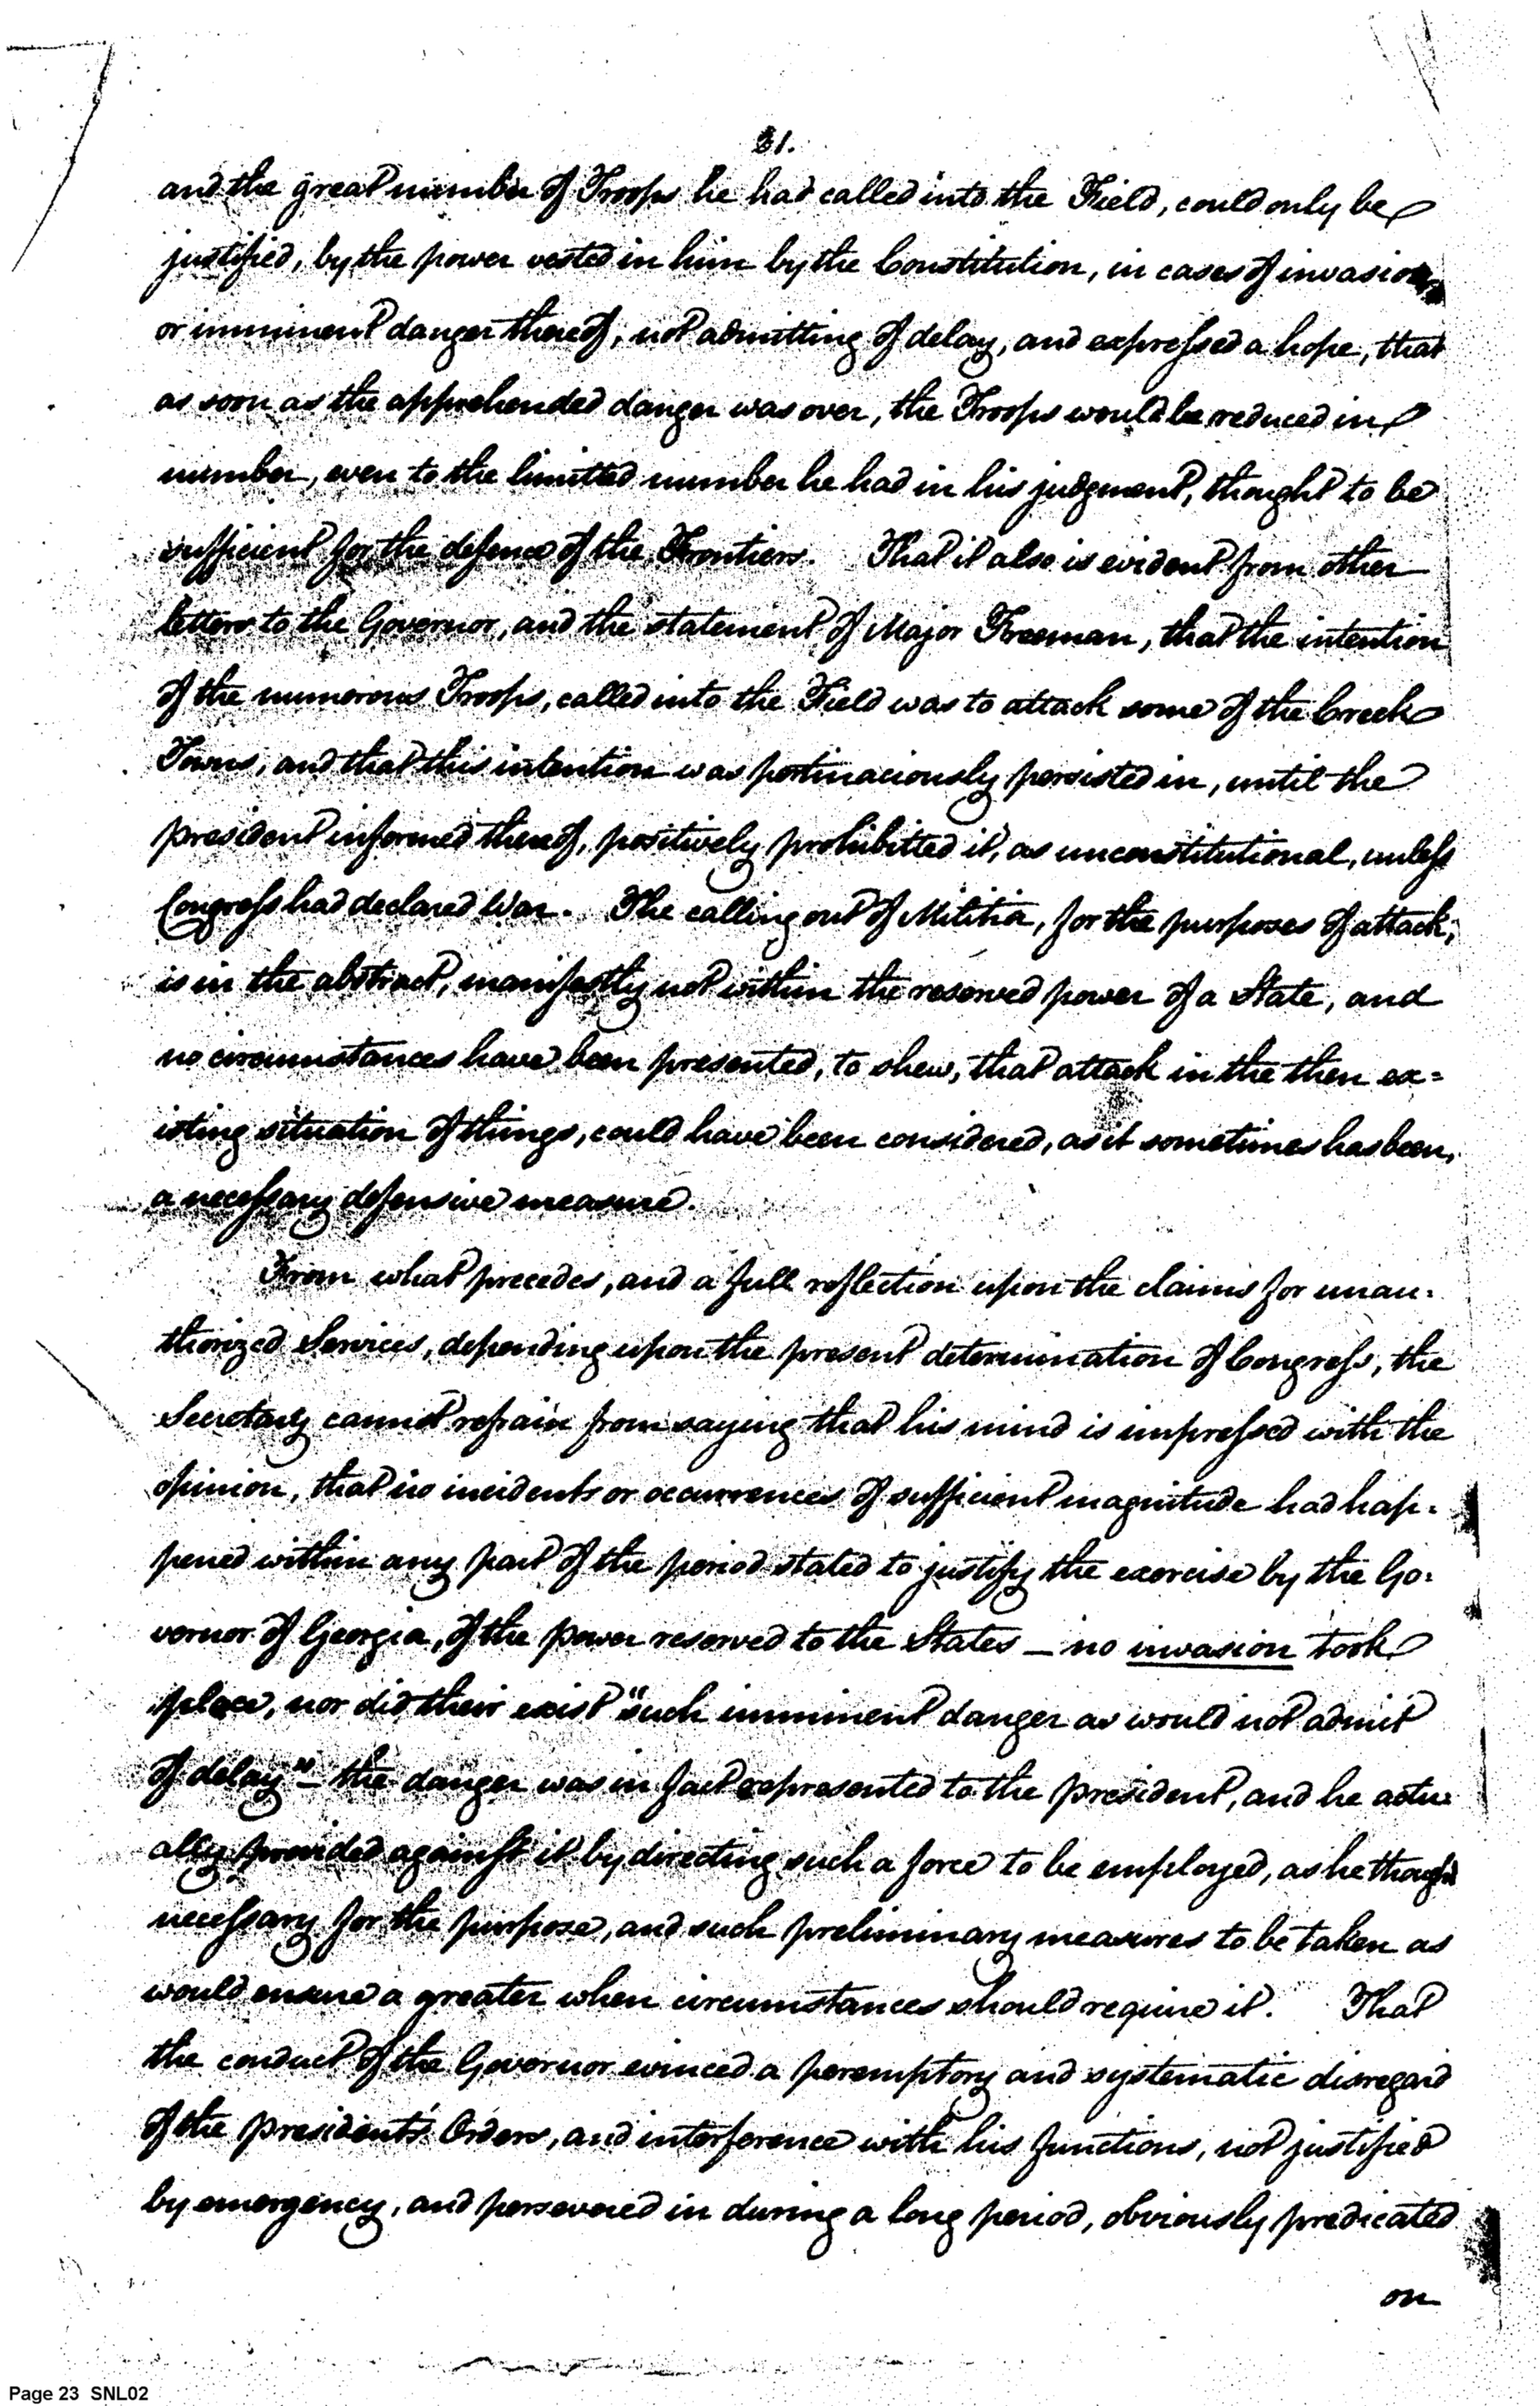 21.
and the great number of Troops he had called into the Field, could only be
justified, by the power vested in him by the Constitution, in cases of invasion,
or imminent danger thereof, not admitting of delay, and expressed a hope, that
as soon as the apprehended danger was over, the Troops would be reduced in
number, even to the limitted number he had in his judgment, thought to be
sufficient for the defence of the Frontiers. That it also is evident from other
letters to the Governor, and the statement of Major Freeman, that the intention
of the numerous Troops, called into the Field was to attack some of the Creek
Towns, and that this intention was pertinaciously persisted in, until the
president informed thereof, positively prohibitted it, as unconstitutional, unless
Congress had declared War. The calling out of Militia, for the purposes of attack,
is in the abstract, manifestly not within the reserved power of a State, and
no circumstances have been presented, to shew, that attack in the then ex=
isting situation of things, could have been considered, as it sometimes has been,
a necessary defensive measure.
From what precedes, and a full reflection upon the claims for unau-
thorized Services, depending upon the present determination of Congress, the
Secretary cannot refrain from saying that his mind is impressed with the
opinion, that no incidents or occurrences of sufficient magnitude had hap-
pened within any part of the period stated to justify the exercise by the Go-
vernor of Georgia, of the power reserved to the States – no invasion took
place, nor did their exist "such imminent danger as would not admit
of delay" – the danger was in fact represented to the president, and he actu-
ally provided against it by directing such a force to be employed, as he thought
necessary for the purpose, and such preliminary measures to be taken as
would ensure a greater when circumstances should require it. That
the conduct of the Governor evinced a peremptory and systematic disregard
of the president's Orders, and interference with his functions, not justified
by emergency, and persevered in during a long period, obviously predicated
on
Page 23 SNL02